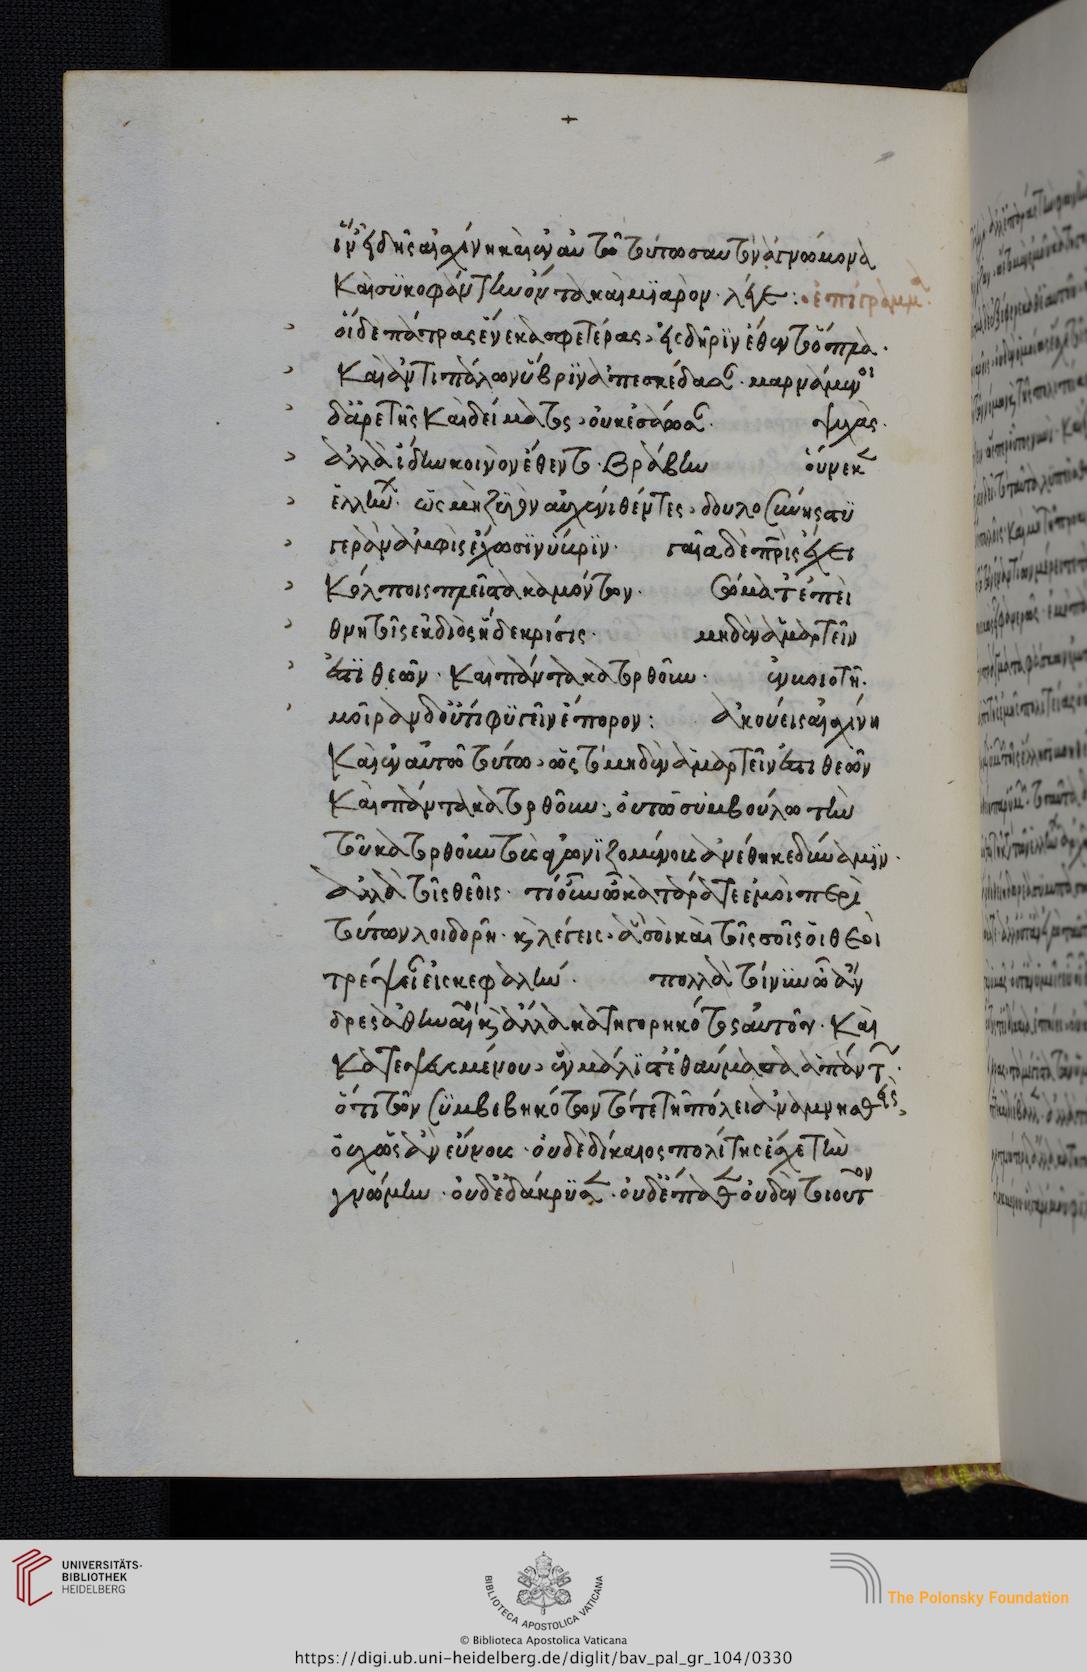 ἵν' εἰδῆις αἰσχίνη και ἐν αὐτῶ τούτω σαυτὸν ἀγνώμονα
Καὶ συκοφάντην ὄντα καὶ μιαρόν. λέγε :. ἐπίγραμμα.
οἵδε πάτρας ἕνεκα σφετέρας, εἰς δῆριν ἔθεντο ὅπλα.
Καὶ ἀντιπάλων ὕβριν ἀπεσκέδασαν. μαρνάμενοι
δ' ἀρετῆς Καὶ δείματος, οὐκ ἐσάωσαν. ψυχὰς.
ἀλλ' ἀΐδην κοινὸν ἔθεντο. Βράβην οὕνεκεν
ἑλλήνων. ὡς μὴ ζυγὸν αὐχένι θέντες, δουλοσύνης στυ
γερὰν ἀμφὶς ἔχωσιν ὕβριν. γαῖα δὲ πατρὶς ἔχει
Κόλποις πλεῖστα καμόντων. σώματ' ἐπεὶ
θνητοῖς ἐκ διὸς ἥδε κρίσις. μηδὲν ἁμαρτεῖν
ἐστι θεῶν. Καὶ πάντα κατορθοῦν. ἐν βιοτῆ.
μοῖραν δ' οὔτι φυγεῖν ἔπορον : ἀκούεις αἰσχίνη
Καὶ ἐν αὐτῶ τούτω, ὡς τὸ μηδὲν ἁμαρτεῖν ἐστι θεῶν
Καὶ πάντα κατορθοῦν :, οὐ τῶ συμβούλω τὴν
τοῦ κατορθοῦν τοὺς ἀγωνιζομένους ἀνέθηκε δύναμιν.
ἀλλὰ τοῖς θεοῖς. τί οὖν ὦ κατάρατε ἐμοὶ περὶ
τούτων λοιδορῆ. κὶ λέγεις, ἃ σοὶ καὶ τοῖς σοῖς οἱ θεοὶ
τρέψειαν εἰς κεφαλήν. πολλὰ τοίνυν ὦ ἄν
δρες ἀθηναῖοι κὶ ἄλλα κατηγορηκότος αὐτοῦ. Καὶ
Κατεψευσμένου, ὃ μάλιστ' ἐθαύμασα ἁπάντων.
ὅτι τῶν συμβεβηκότων τότε τῆ πόλει ἀναμνησθεὶς,
οὐχ ὡς ἂν εὔνους. οὐδὲ δίκαιος πολίτης ἔσχε τὴν
γνώμην. οὐδ' ἐδάκρυσεν. οὐδ' ἔπαθεν οὐδὲν τοιοῦτον
UNIVERSITÄTS-
BIBLIOTHEK
HEIDELBERG
BIBLIOTECA APOSTOLICA VATICANA
The Polonsky Foundation
© Biblioteca Apostolica Vaticana
https://digi.ub.uni-heidelberg.de/diglit/bav_pal_gr_104/0330